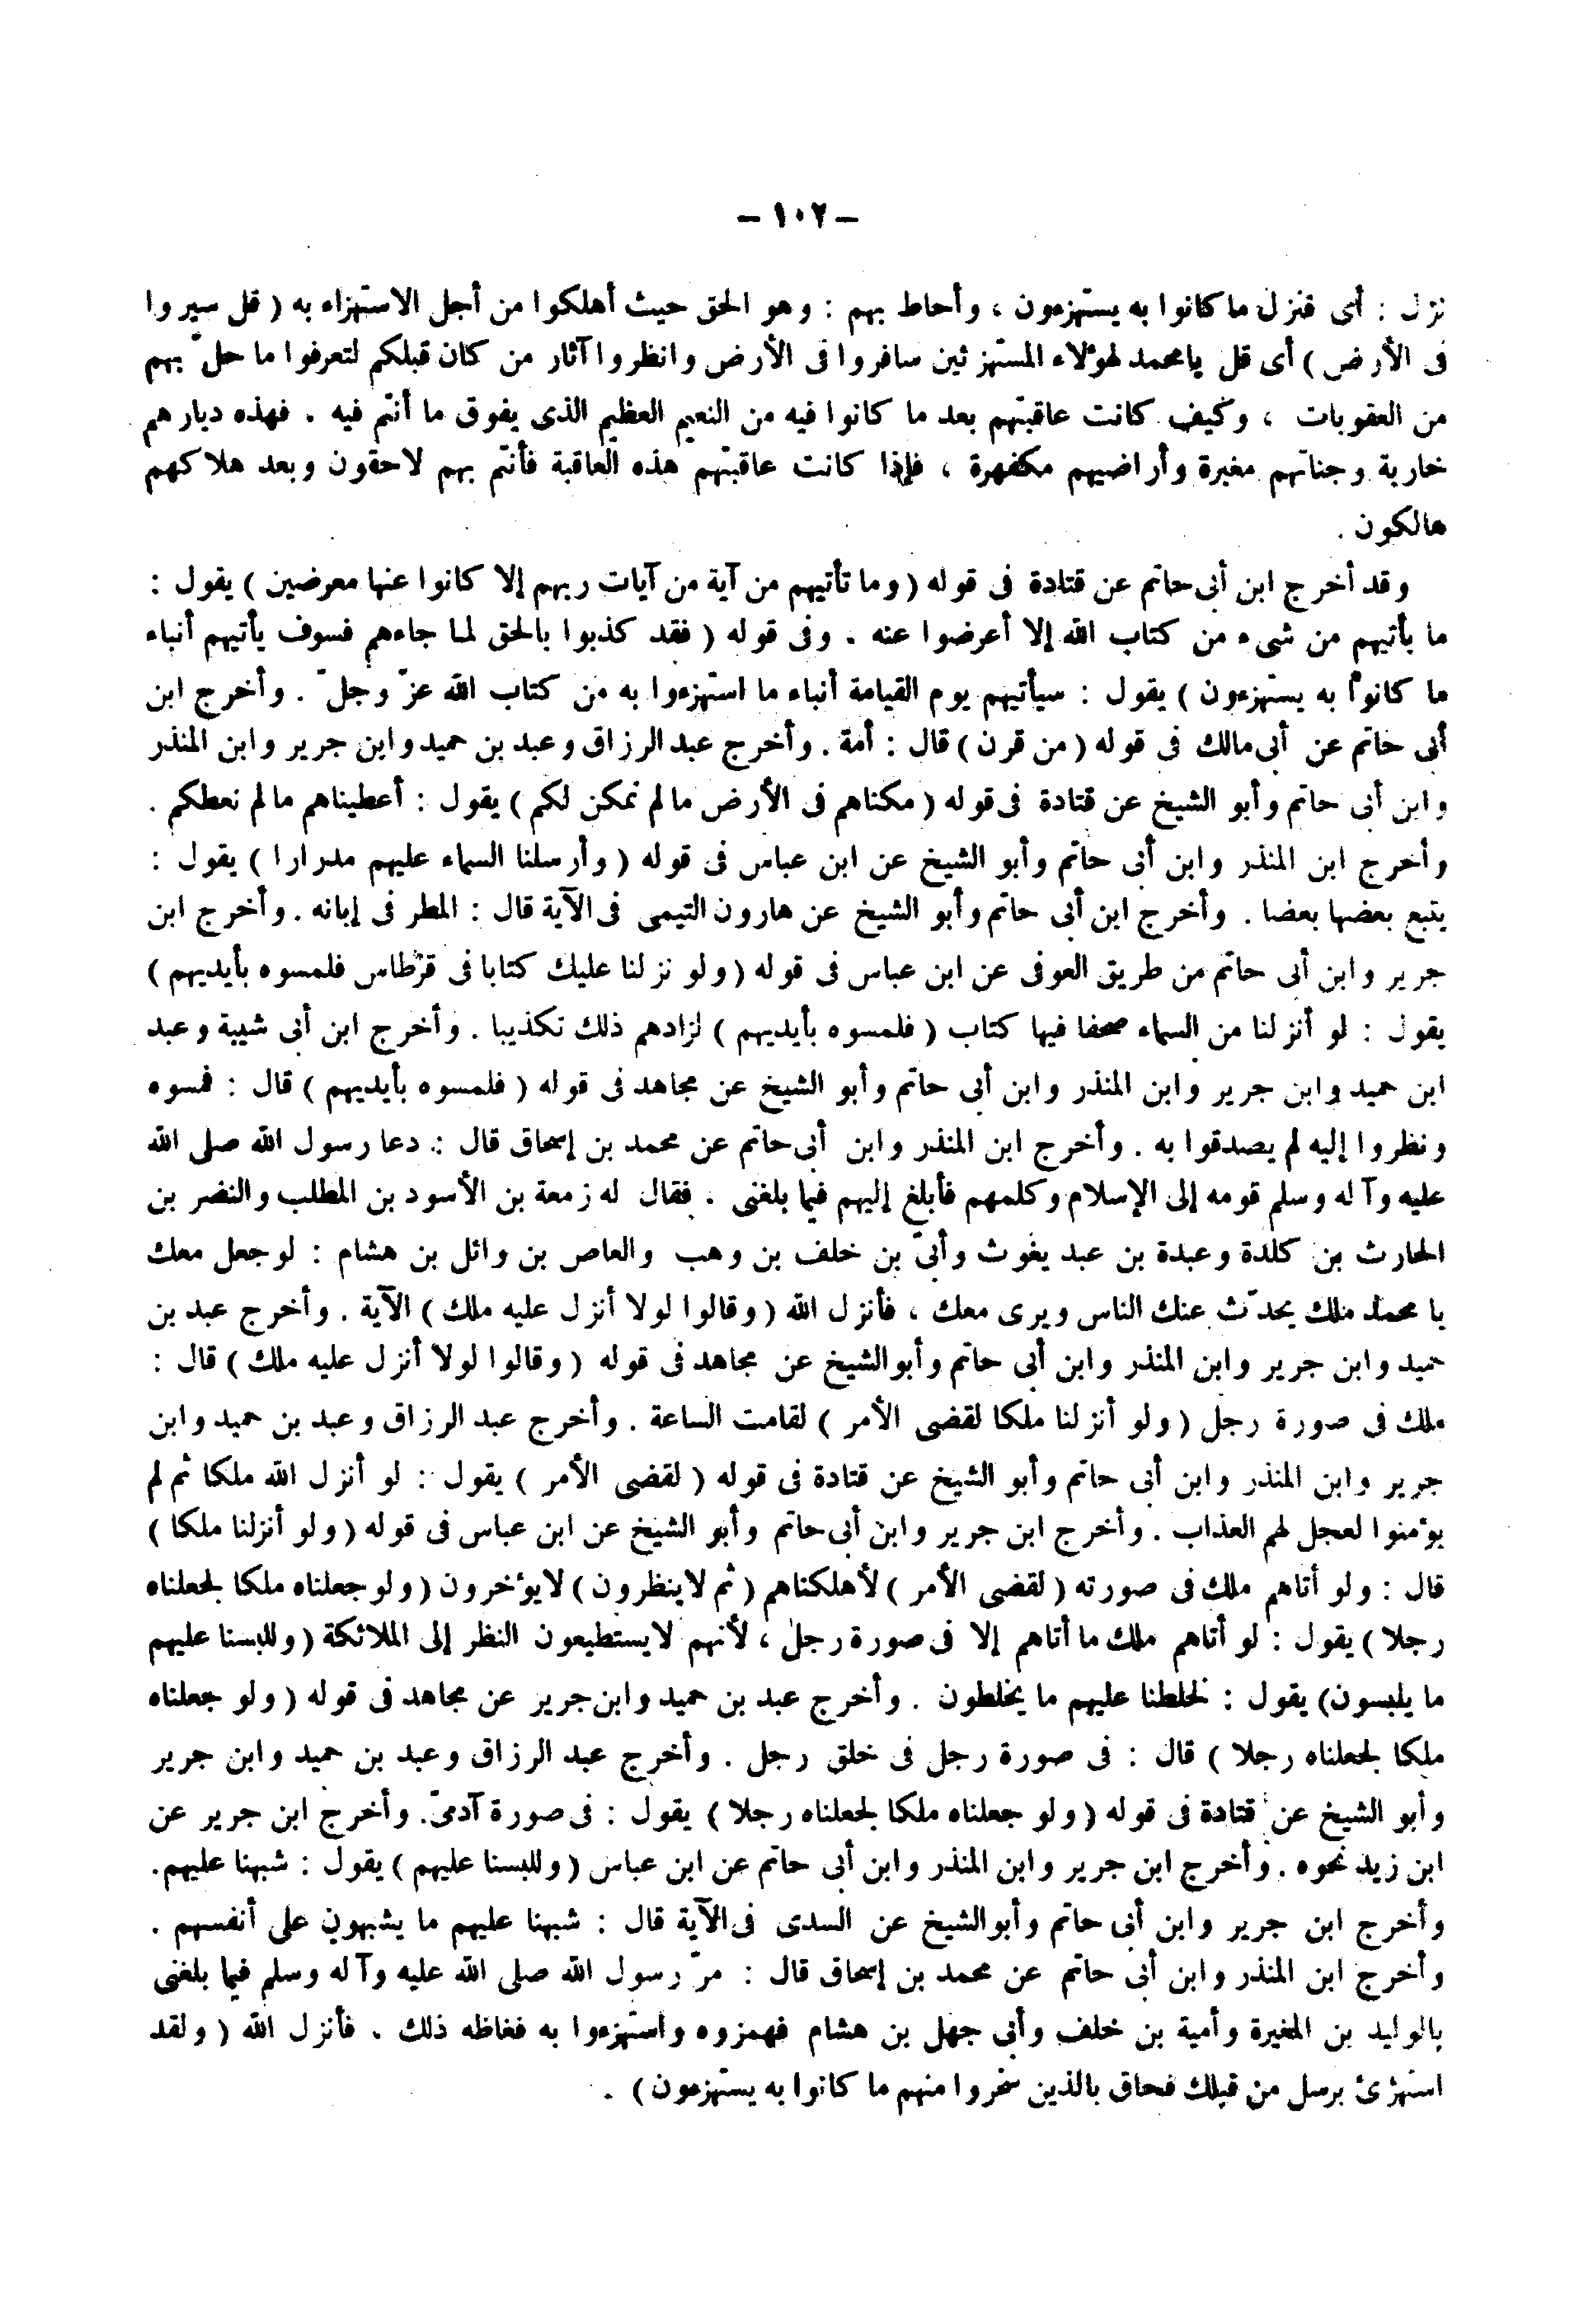 – ١٠٢ –
نزل : أى فنزل ما كانوا به يستهزءون ، وأحاط بهم : وهو الحق حيث أهلكوا من أجل الاستهزاء به ( قل سيروا
فى الأرض ) أى قل يا محمد لهؤلاء المستهزئين سافروا فى الأرض وانظروا آثار من كان قبلكم لتعرفوا ما حلّ بهم
من العقوبات ، وكيف كانت عاقبتهم بعد ما كانوا فيه من النعيم العظيم الذى يفوق ما أنتم فيه . فهذه ديارهم
خاربة وجناتهم مغبرة وأراضيهم مكفهرة ، فإذا كانت عاقبتهم هذه العاقبة فأنتم بهم لاحقون وبعد هلاكهم
هالكون .
وقد أخرج ابن أبى حاتم عن قتادة فى قوله ( وما تأتيهم من آية من آيات ربهم إلا كانوا عنها معرضين ) يقول :
ما يأتيهم من شىء من كتاب الله إلا أعرضوا عنه . وفى قوله ( فقد كذبوا بالحق لما جاءهم فسوف يأتيهم أنباء
ما كانوا به يستهزءون ) يقول : سيأتيهم يوم القيامة أنباء ما استهزءوا به من كتاب الله عزّ وجلّ . وأخرج ابن
أبى حاتم عن أبى مالك فى قوله ( من قرن ) قال : أمة . وأخرج عبد الرزاق وعبد بن حميد وابن جرير وابن المنذر
وابن أبى حاتم وأبو الشيخ عن قتادة فى قوله ( مكناهم فى الأرض ما لم نمكن لكم ) يقول : أعطيناهم ما لم نعطكم .
وأخرج ابن المنذر وابن أبى حاتم وأبو الشيخ عن ابن عباس فى قوله ( وأرسلنا السماء عليهم مدرارا ) يقول :
يتبع بعضها بعضا . وأخرج ابن أبى حاتم وأبو الشيخ عن هارون التيمى فى الآية قال : المطر فى إبانه . وأخرج ابن
جرير وابن أبى حاتم من طريق العوفى عن ابن عباس فى قوله ( ولو نزلنا عليك كتابا فى قرطاس فلمسوه بأيديهم )
يقول : لو أنزلنا من السماء صحفا فيها كتاب ( فلمسوه بأيديهم ) لزادهم ذلك تكذيبا . وأخرج ابن أبى شيبة وعبد
ابن حميد وابن جرير وابن المنذر وابن أبى حاتم وأبو الشيخ عن مجاهد فى قوله ( فلمسوه بأيديهم ) قال : فمسوه
ونظروا إليه لم يصدقوا به . وأخرج ابن المنذر وابن أبى حاتم عن محمد بن إسحاق قال : دعا رسول الله صلى الله
عليه وآله وسلم قومه إلى الإسلام وكلمهم فأبلغ إليهم فيما بلغنى . فقال له زمعة بن الأسود بن المطلب والنضر بن
الحارث بن كلدة وعبدة بن عبد يغوث وأبىّ بن خلف بن وهب والعاص بن وائل بن هشام : لو جعل معك
يا محمد ملك يحدّث عنك الناس ويرى معك ، فأنزل الله ( وقالوا لولا أنزل عليه ملك ) الآية . وأخرج عبد بن
حميد وابن جرير وابن المنذر وابن أبى حاتم وأبو الشيخ عن مجاهد فى قوله ( وقالوا لولا أنزل عليه ملك ) قال :
ملك فى صورة رجل ( ولو أنزلنا ملكا لقضى الأمر ) لقامت الساعة . وأخرج عبد الرزاق وعبد بن حميد وابن
جرير وابن المنذر وابن أبى حاتم وأبو الشيخ عن قتادة فى قوله ( لقضى الأمر ) يقول : لو أنزل الله ملكا ثم لم
يؤمنوا لعجل لهم العذاب . وأخرج ابن جرير وابن أبى حاتم وأبو الشيخ عن ابن عباس فى قوله ( ولو أنزلنا ملكا )
قال : ولو أتاهم ملك فى صورته ( لقضى الأمر ) لأهلكناهم ( ثم لا ينظرون ) لا يؤخرون ( ولو جعلناه ملكا لجعلناه
رجلا ) يقول : لو أتاهم ملك ما أتاهم إلا فى صورة رجل ، لأنهم لا يستطيعون النظر إلى الملائكة ( وللبسنا عليهم
ما يلبسون ) يقول : لخلطنا عليهم ما يخلطون . وأخرج عبد بن حميد وابن جرير عن مجاهد فى قوله ( ولو جعلناه
ملكا لجعلناه رجلا ) قال : فى صورة رجل فى خلق رجل . وأخرج عبد الرزاق وعبد بن حميد وابن جرير
وأبو الشيخ عن قتادة فى قوله ( ولو جعلناه ملكا لجعلناه رجلا ) يقول : فى صورة آدمىّ . وأخرج ابن جرير عن
ابن زيد نحوه . وأخرج ابن جرير وابن المنذر وابن أبى حاتم عن ابن عباس ( وللبسنا عليهم ) يقول : شبهنا عليهم .
وأخرج ابن جرير وابن أبى حاتم وأبو الشيخ عن السدى فى الآية قال : شبهنا عليهم ما يشبهون على أنفسهم .
وأخرج ابن المنذر وابن أبى حاتم عن محمد بن إسحاق قال : مرّ رسول الله صلى الله عليه وآله وسلم فيما بلغنى
بالوليد بن المغيرة وأمية بن خلف وأبى جهل بن هشام فهمزوه واستهزءوا به فغاظه ذلك ، فأنزل الله ( ولقد
استهزئ برسل من قبلك فحاق بالذين سخروا منهم ما كانوا به يستهزءون ) .